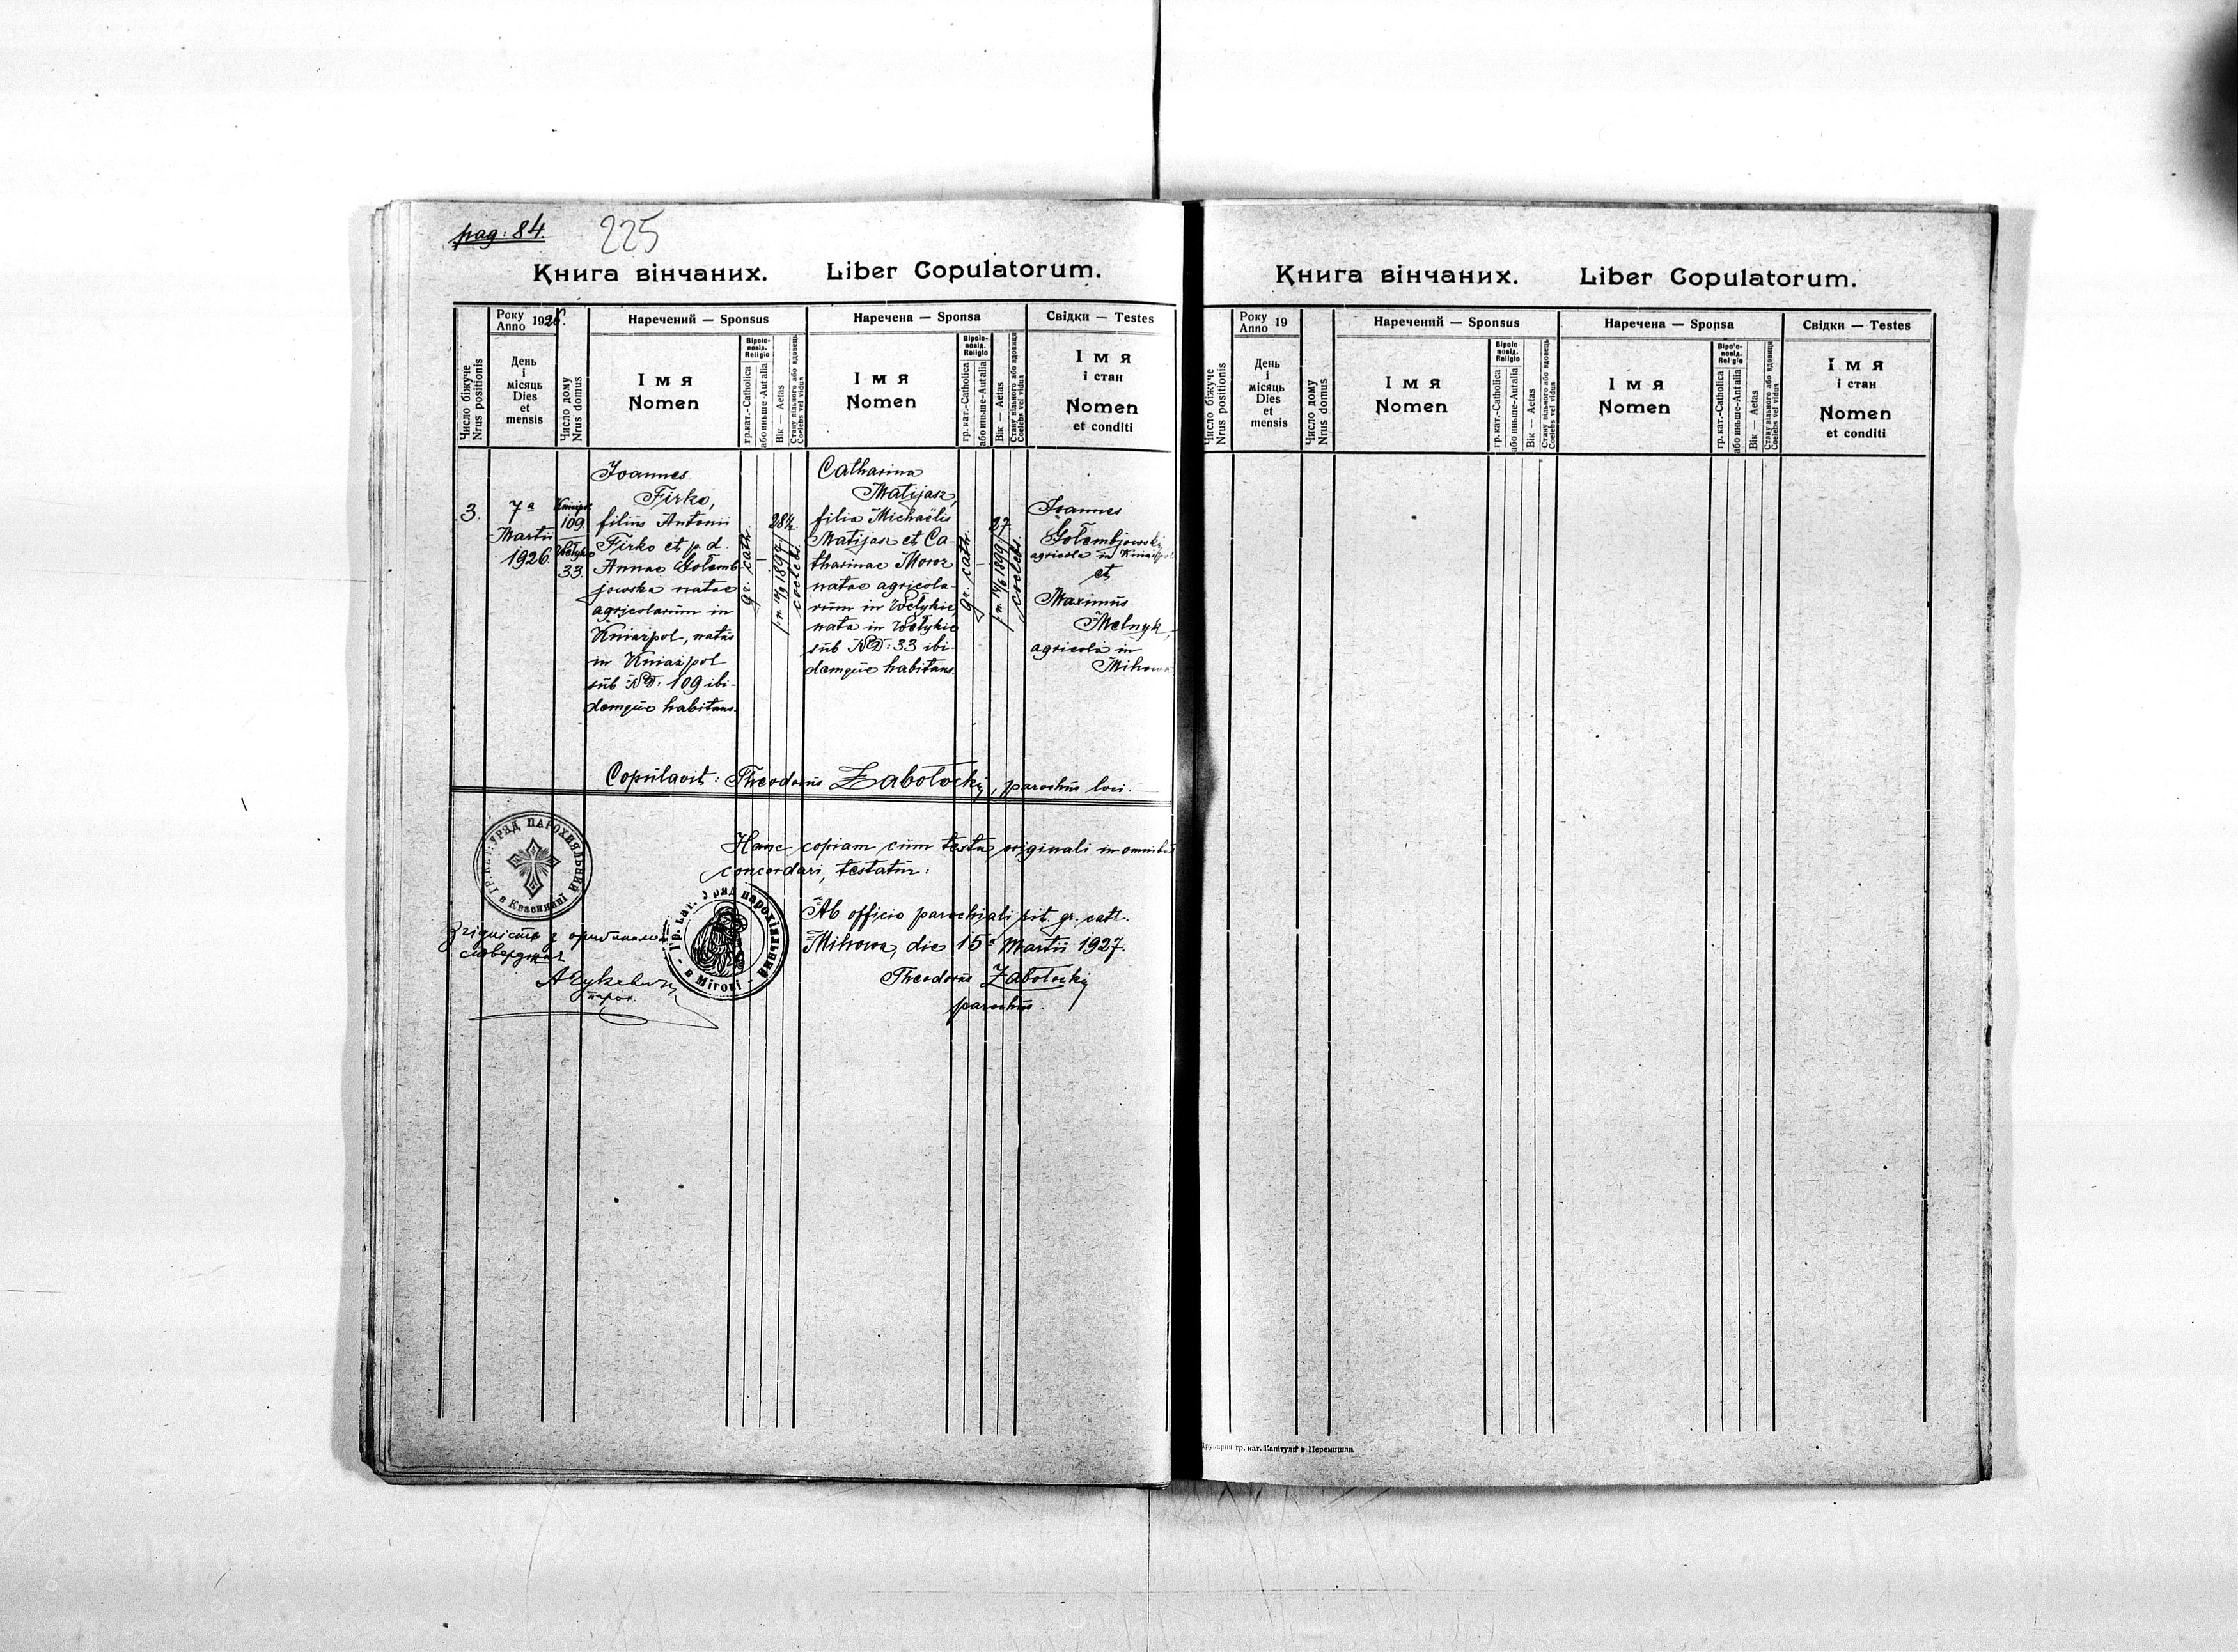 pag: 84.
225
Книга вінчаних. Liber Copulatorum.
Число біжуче
Nrus positionis
Року
Anno 1926.
День
і
місяць
Dies
et
mensis
Число дому
Nrus domus
Наречений — Sponsus
Імя
Nomen
Віроіс-
повід.
Religio
гр.кат.-Catholica
або иньше-Aut alia
Вік — Aetas
Стану вільного або вдовець
Coelebs vel vidus
Наречена — Sponsa
Імя
Nomen
Віроіс-
повід.
Religio
гр. кат.-Catholica
або иньше-Aut alia
Вік — Aetas
Стану вільного або вдовиця
Coelebs vel vidua
Свідки — Testes
Імя
і стан
Nomen
et conditi
3.
7ª
Martii
1926
109.
33.
Joannes
Firko,
filius Antonii
Firko et p. d.
Annae Gołemb
jowska natae
agricolarum in
Kniaźpol, natus
in Kniaźpol
sub ND. 109 ibi-
demque habitans.
gr. cath.
28½
1897
coelebs
Catharina
Matijasz,
filia Michaëlis
Matijasz et Ca-
tharinae Moroz
natae agricola-
rum in Wełykie,
nata in Wełykie
sub ND: 33 ibi-
demque habitans.
gr. cath.
27
1899
coelebs.
Joannes
Gołembjowskij
agricola in Kniaźpol
et
Maximus
Melnyk,
agricola in
Mihowa
Copulavit: Theodorus Zabołockij, parochus loci.
ГР. КАТ. УРЯД ПАРОХИЯЛЬНИЙ
в Квасинині
Hanc copiam cum textu originali in omnibus
concordari, testatur:
Гр. кат. Уряд парохіяльний
в Мігові
Ab officio parochiali rit. gr. cath.
Mihowa, die 15ª Martii 1927.
Theodorus Zabołockij
parochus.
Згідність з оригіналом
стверджає
парох.
Книга вінчаних. Liber Copulatorum.
Число біжуче
Nrus positionis
Року
Anno 19
День
і
місяць
Dies
et
mensis
Число дому
Nrus domus
Наречений — Sponsus
Імя
Nomen
Віроіс-
повід.
Religio
гр. кат.-Catholica
або иньше-Aut alia
Вік — Aetas
Стану вільного або вдовець
Coelebs vel vidus
Наречена — Sponsa
Імя
Nomen
Віроіс-
повід.
Religio
гр. кат.-Catholica
або иньше-Aut alia
Вік — Aetas
Стану вільного або вдовиця
Coelebs vel vidua
Свідки — Testes
Імя
і стан
Nomen
et conditi
Друкарня гр. кат. Капітули в Перемишли.